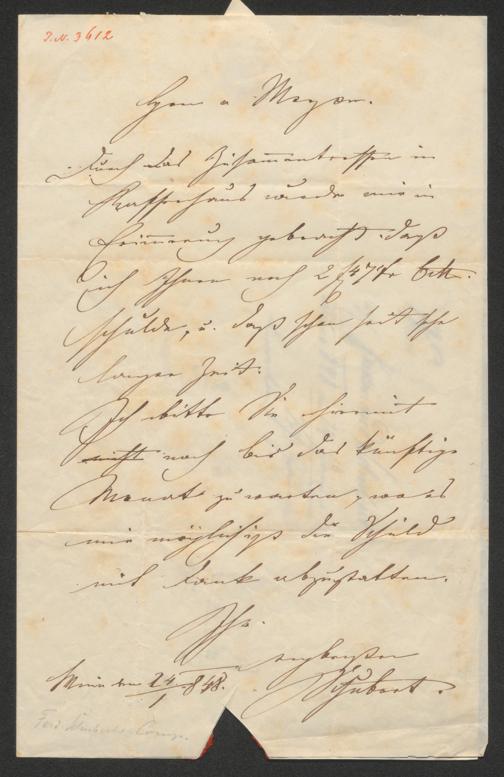 I.N. 3612
Herr v Mayer.
Durch das Zusammentreffen im
Kaffeehaus wurde mir in
Erinnerung gebracht daß
ich Ihnen noch 2 f 47
schulde, u. daß schon seit sehr
langer Zeit.
Ich bitte Sie hiermit
nicht noch bis das künftige
Monat zu warten, wo es
mir möglich ist die Schuld
mit Dank abzustatten.
Ihr
ergebenster
Wien den 24/1 848. Schubert.
Ferd. Schubert